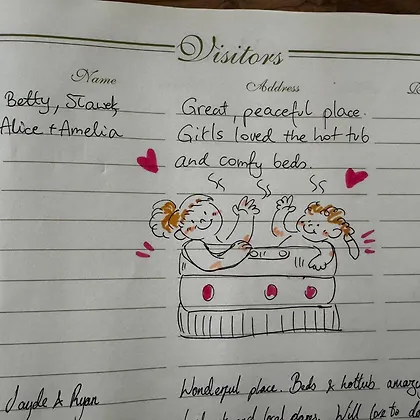 Visitors
Name
Address
Betty, Slavek,
Alice + Amelia
Great, peaceful place.
Girls loved the hot tub
and comfy beds.
Jayde & Ryan
Wonderful place. Beds & hottub amazing
local
Will love to